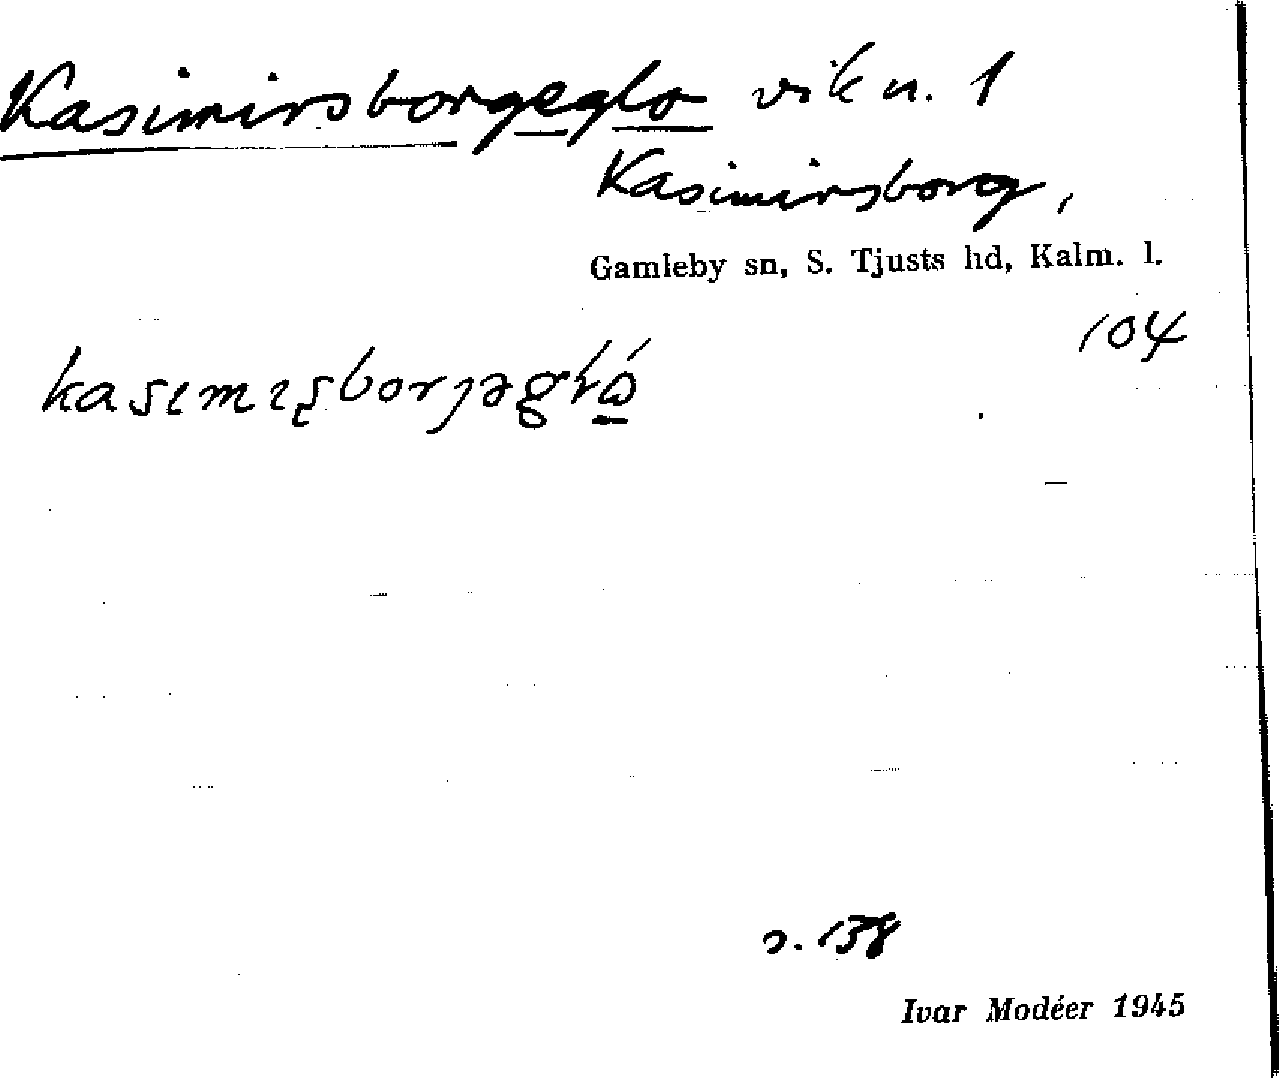 Kasimirsborgeglo vik n. 1
Kasimirsborg,
Gamleby sn, S. Tjusts hd, Kalm. l.
104
s. 138
Ivar Modéer 1945